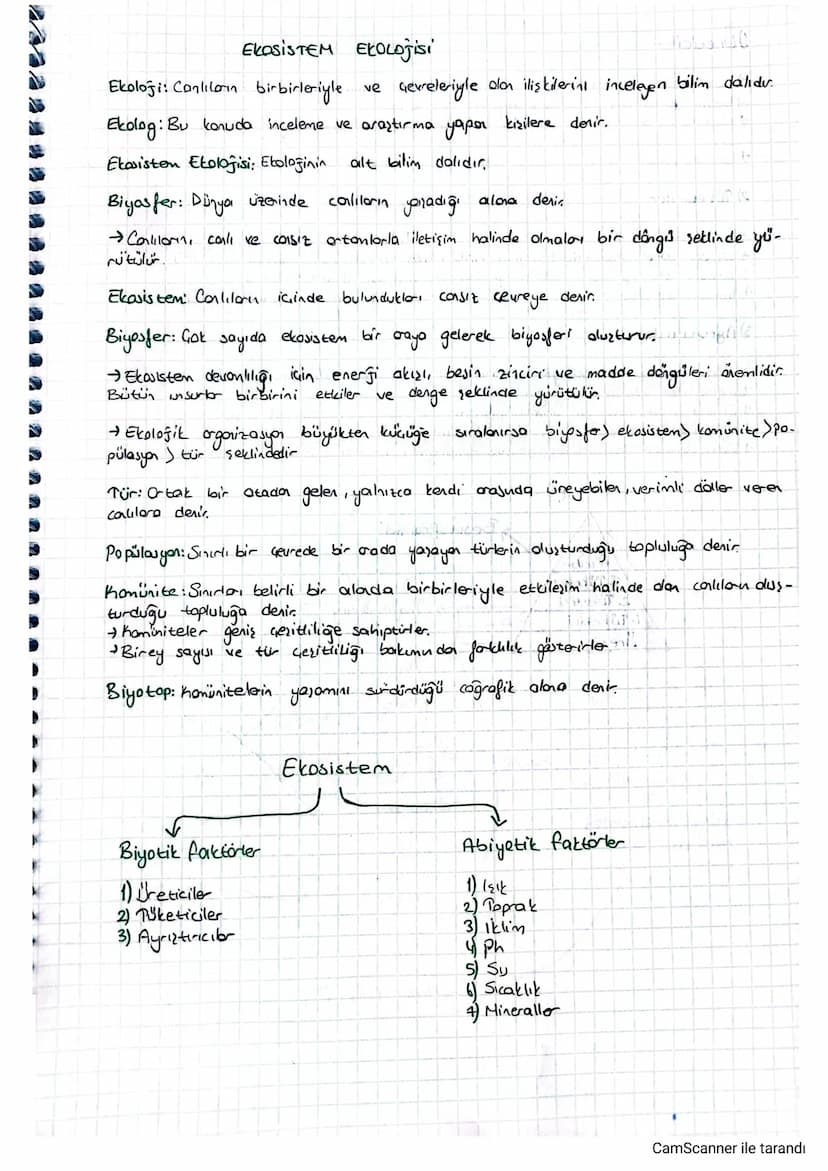 EKOSİSTEM EKOLOJİSİ
Ekoloji: Canlıların birbirleriyle ve çevreleriyle olan ilişkilerini inceleyen bilim dalıdır.
Ekolog: Bu konuda inceleme ve araştırma yapan kişilere denir.
Ekosistem Ekolojisi: Ekolojinin alt bilim dalıdır.
Biyosfer: Dünya üzerinde canlıların yaşadığı alana denir.
→ Canlıların, canlı ve cansız ortamlarla iletişim halinde olmaları bir döngü şeklinde yü-
rütülür.
Ekosistem: Canlıların içinde bulundukları cansız çevreye denir.
Biyosfer: Çok sayıda ekosistem bir araya gelerek biyosferi oluşturur.
→ Ekosistem devamlılığı için enerji akışı, besin zinciri ve madde döngüleri önemlidir.
Bütün unsurlar birbirini etkiler ve denge şeklinde yürütülür.
→ Ekolojik organizasyon büyükten küçüğe sıralanırsa biyosfer> ekosistem> komünite>po-
pülasyon > tür şeklindedir
Tür: Ortak bir atadan gelen, yalnızca kendi arasında üreyebilen, verimli döller veren
canlılara denir.
Popülasyon: Sınırlı bir çevrede bir arada yaşayan türlerin oluşturduğu topluluğa denir.
Komünite: Sınırları belirli bir alanda birbirleriyle etkileşim halinde olan canlıların oluş-
turduğu topluluğa denir.
→ Komüniteler geniş çeşitliliğe sahiptirler.
→ Birey sayısı ve tür çeşitliliği bakımından farklılık gösterirler.
Biyotop: Komünitelerin yaşamını sürdürdüğü coğrafik alana denir.
Ekosistem
Biyotik faktörler
1) Üreticiler
2) Tüketiciler
3) Ayrıştırıcılar
Abiyotik faktörler
1) Işık
2) Toprak
3) İklim
4) Ph
5) Su
6) Sıcaklık
7) Mineraller
CamScanner ile tarandı